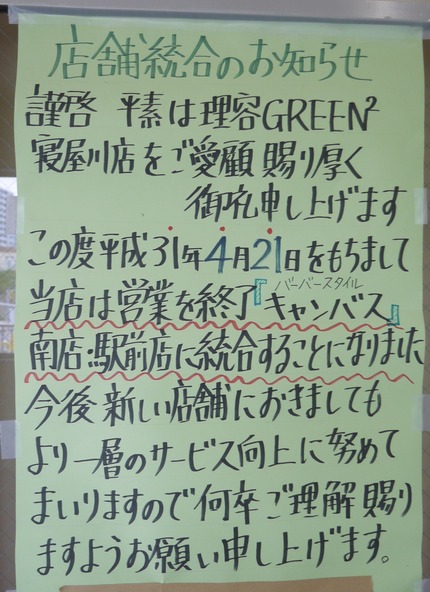 店舗統合のお知らせ
謹啓 平素は理容GREEN²
寝屋川店をご愛顧賜り厚く
御礼申し上げます
この度平成31年4月21日をもちまして
バーバースタイル
当店は営業を終了『キャンバス』
南店・駅前店に統合することになりました
今後新しい店舗におきましても
より一層のサービス向上に努めて
まいりますので何卒ご理解賜り
ますようお願い申し上げます。